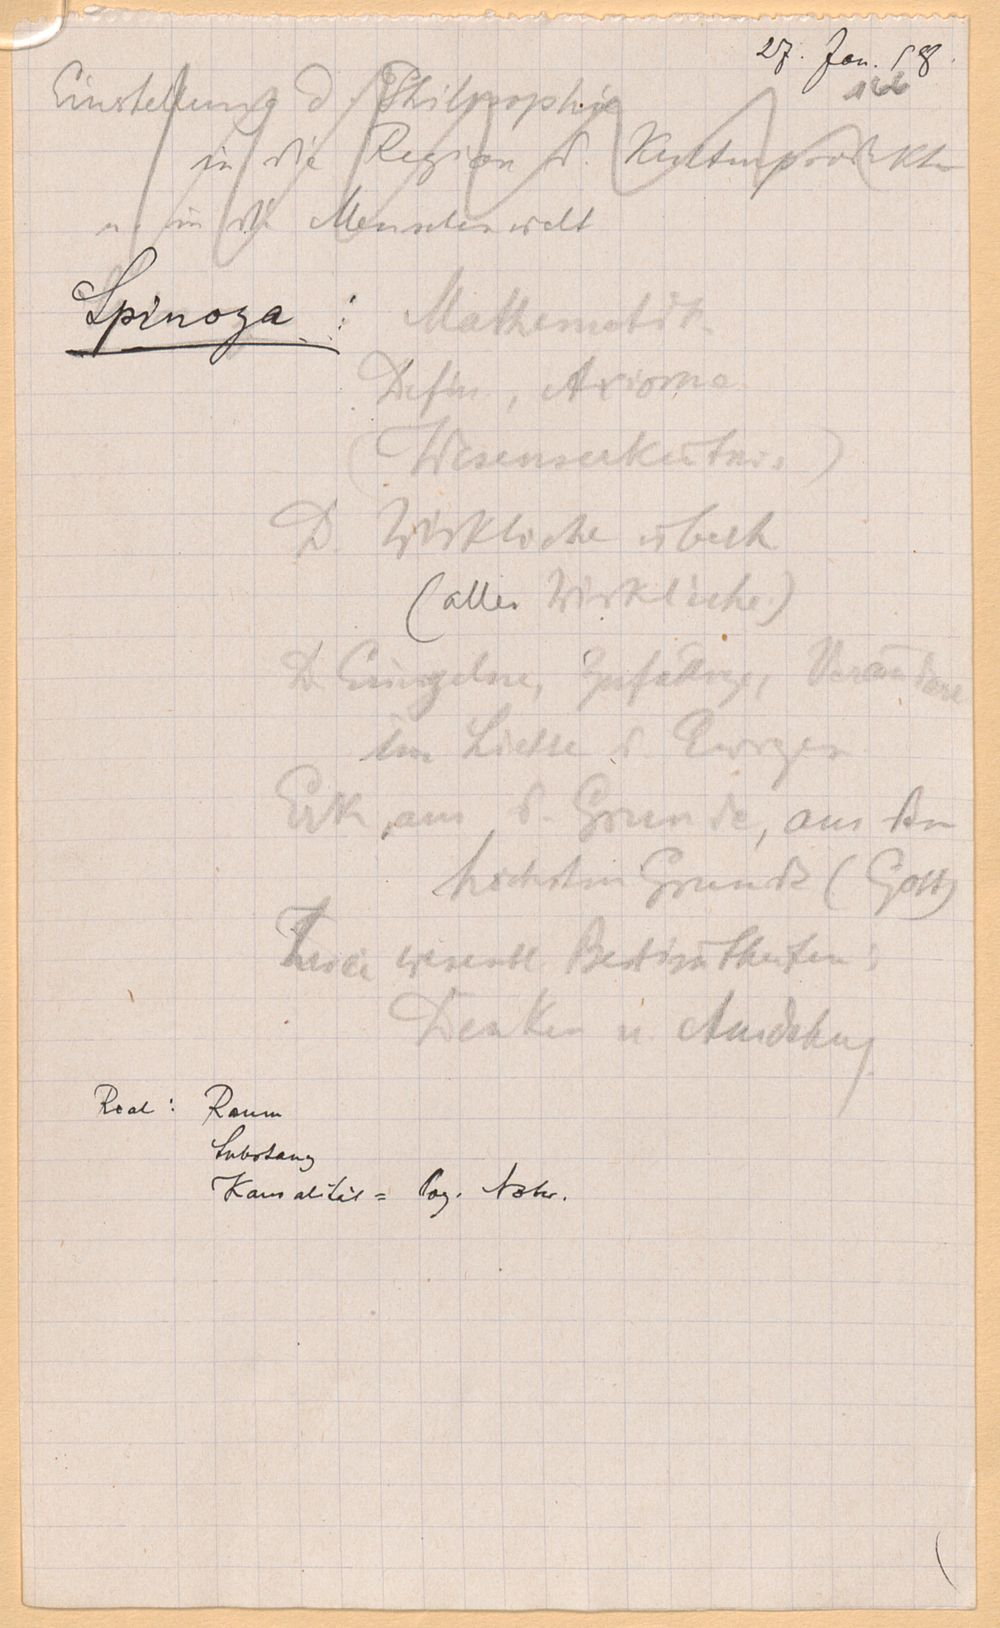 27. Jan. 18.
166
Einstellung d. Philosophie
in die Region d. Kulturprodukte
u. in die Menschenwelt
Spinoza : Mathematik
Defin, Axiome
(Wesenserkentnis)
D. Wirkliche überh
(alles Wirkliche)
D. Einzelne, Zufällige, Verändere
im Lichte d. Ewigen
Erk, aus d. Grunde, aus dem
höchsten Grunde (Gott)
Zwei wesentl Bestimtheiten :
Denken u. Ausdehng
Real : Raum
Substanz
Kausalität =